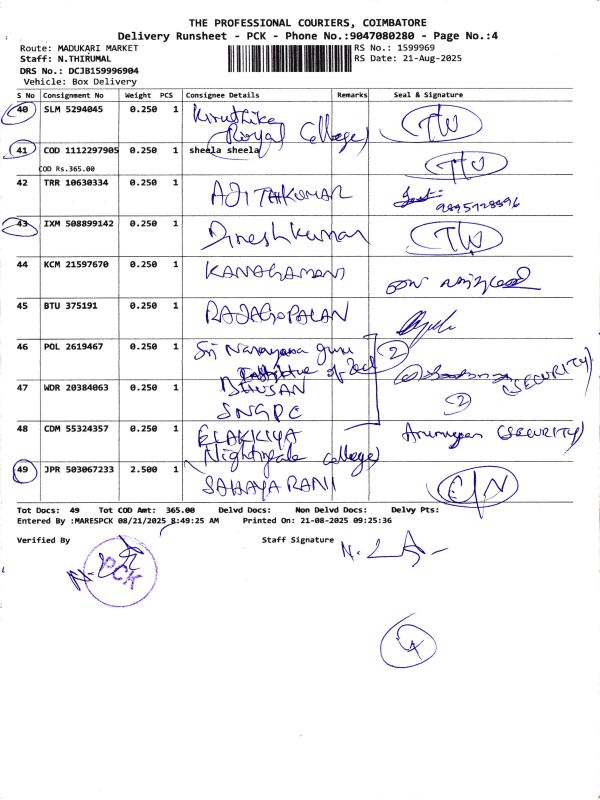 THE PROFESSIONAL COURIERS, COIMBATORE
Delivery Runsheet - PCK - Phone No.:9047080280 - Page No.:4
Route: MADUKARI MARKET
RS No.: 1599969
Staff: N.THIRUMAL
RS Date: 21-Aug-2025
DRS No.: DCJB159996904
Vehicle: Box Delivery
S No Consignment No Weight PCS Consignee Details Remarks Seal & Signature
40 SLM 5294045 0.250 1 Kiruthika TW
Royal College
41 COD 1112297905 0.250 1 sheela sheela TW
COD Rs.365.00
42 TRR 10630334 0.250 1 AJITHKUMAR
43 IXM 508899142 0.250 1 Dineshkumar TW
44 KCM 21597670 0.250 1 KANAGAMANI
45 BTU 375191 0.250 1 RAJAGOPALAN
46 POL 2619467 0.250 1 Sri Narayana guru 2
Institute of Tech (SECURITY)
47 WDR 20384063 0.250 1 BHUSAN 2
SNGPC
48 CDM 55324357 0.250 1 ELAKKIYA Arumugam (SECURITY)
Nightingale college
49 JPR 503067233 2.500 1 SAHAYARANI C/N
Tot Docs: 49 Tot COD Amt: 365.00 Delvd Docs: Non Delvd Docs: Delvy Pts:
Entered By :MARESPCK 08/21/2025 8:49:25 AM Printed On: 21-08-2025 09:25:36
Verified By Staff Signature
PCK